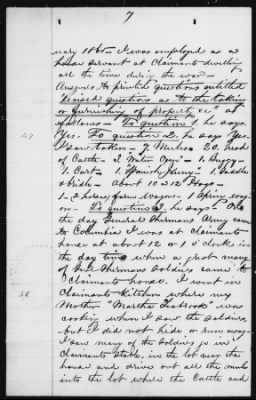 7
uary 1865. I was employed as a
house servant at Claimants dwelling
all the time during the war—
Answers to printed questions entitled
"Second questions as to the taking
or furnishing of property &c" as
follows— To question 1. he says
47 Yes. To question 2. he says Yes
I saw taken— 7. Mules 20. heads
of Cattle— 1. Buggy—
1. Cart— 1. Jenny— 1. Saddle
& Bridle— About 10 or 12 Hogs—
1. 2 horse farm wagon— 1 Spring wag-
on— To question 3. he says— On
the day General Shermans Army came
to Columbia I was at claimants
house at about 12 or 1 o'clock in
the day time when a great many
of Genl Shermans soldiers came to
Claimants house. I went in
Claimants Kitchen where my
Mother Martha was
cooking when I saw the soldiers,
but I did not hide or run away—
I saw many of the soldiers go in
Claimants stable, in the lot near the
house and drive out all the mules
into the lot where the Cattle and